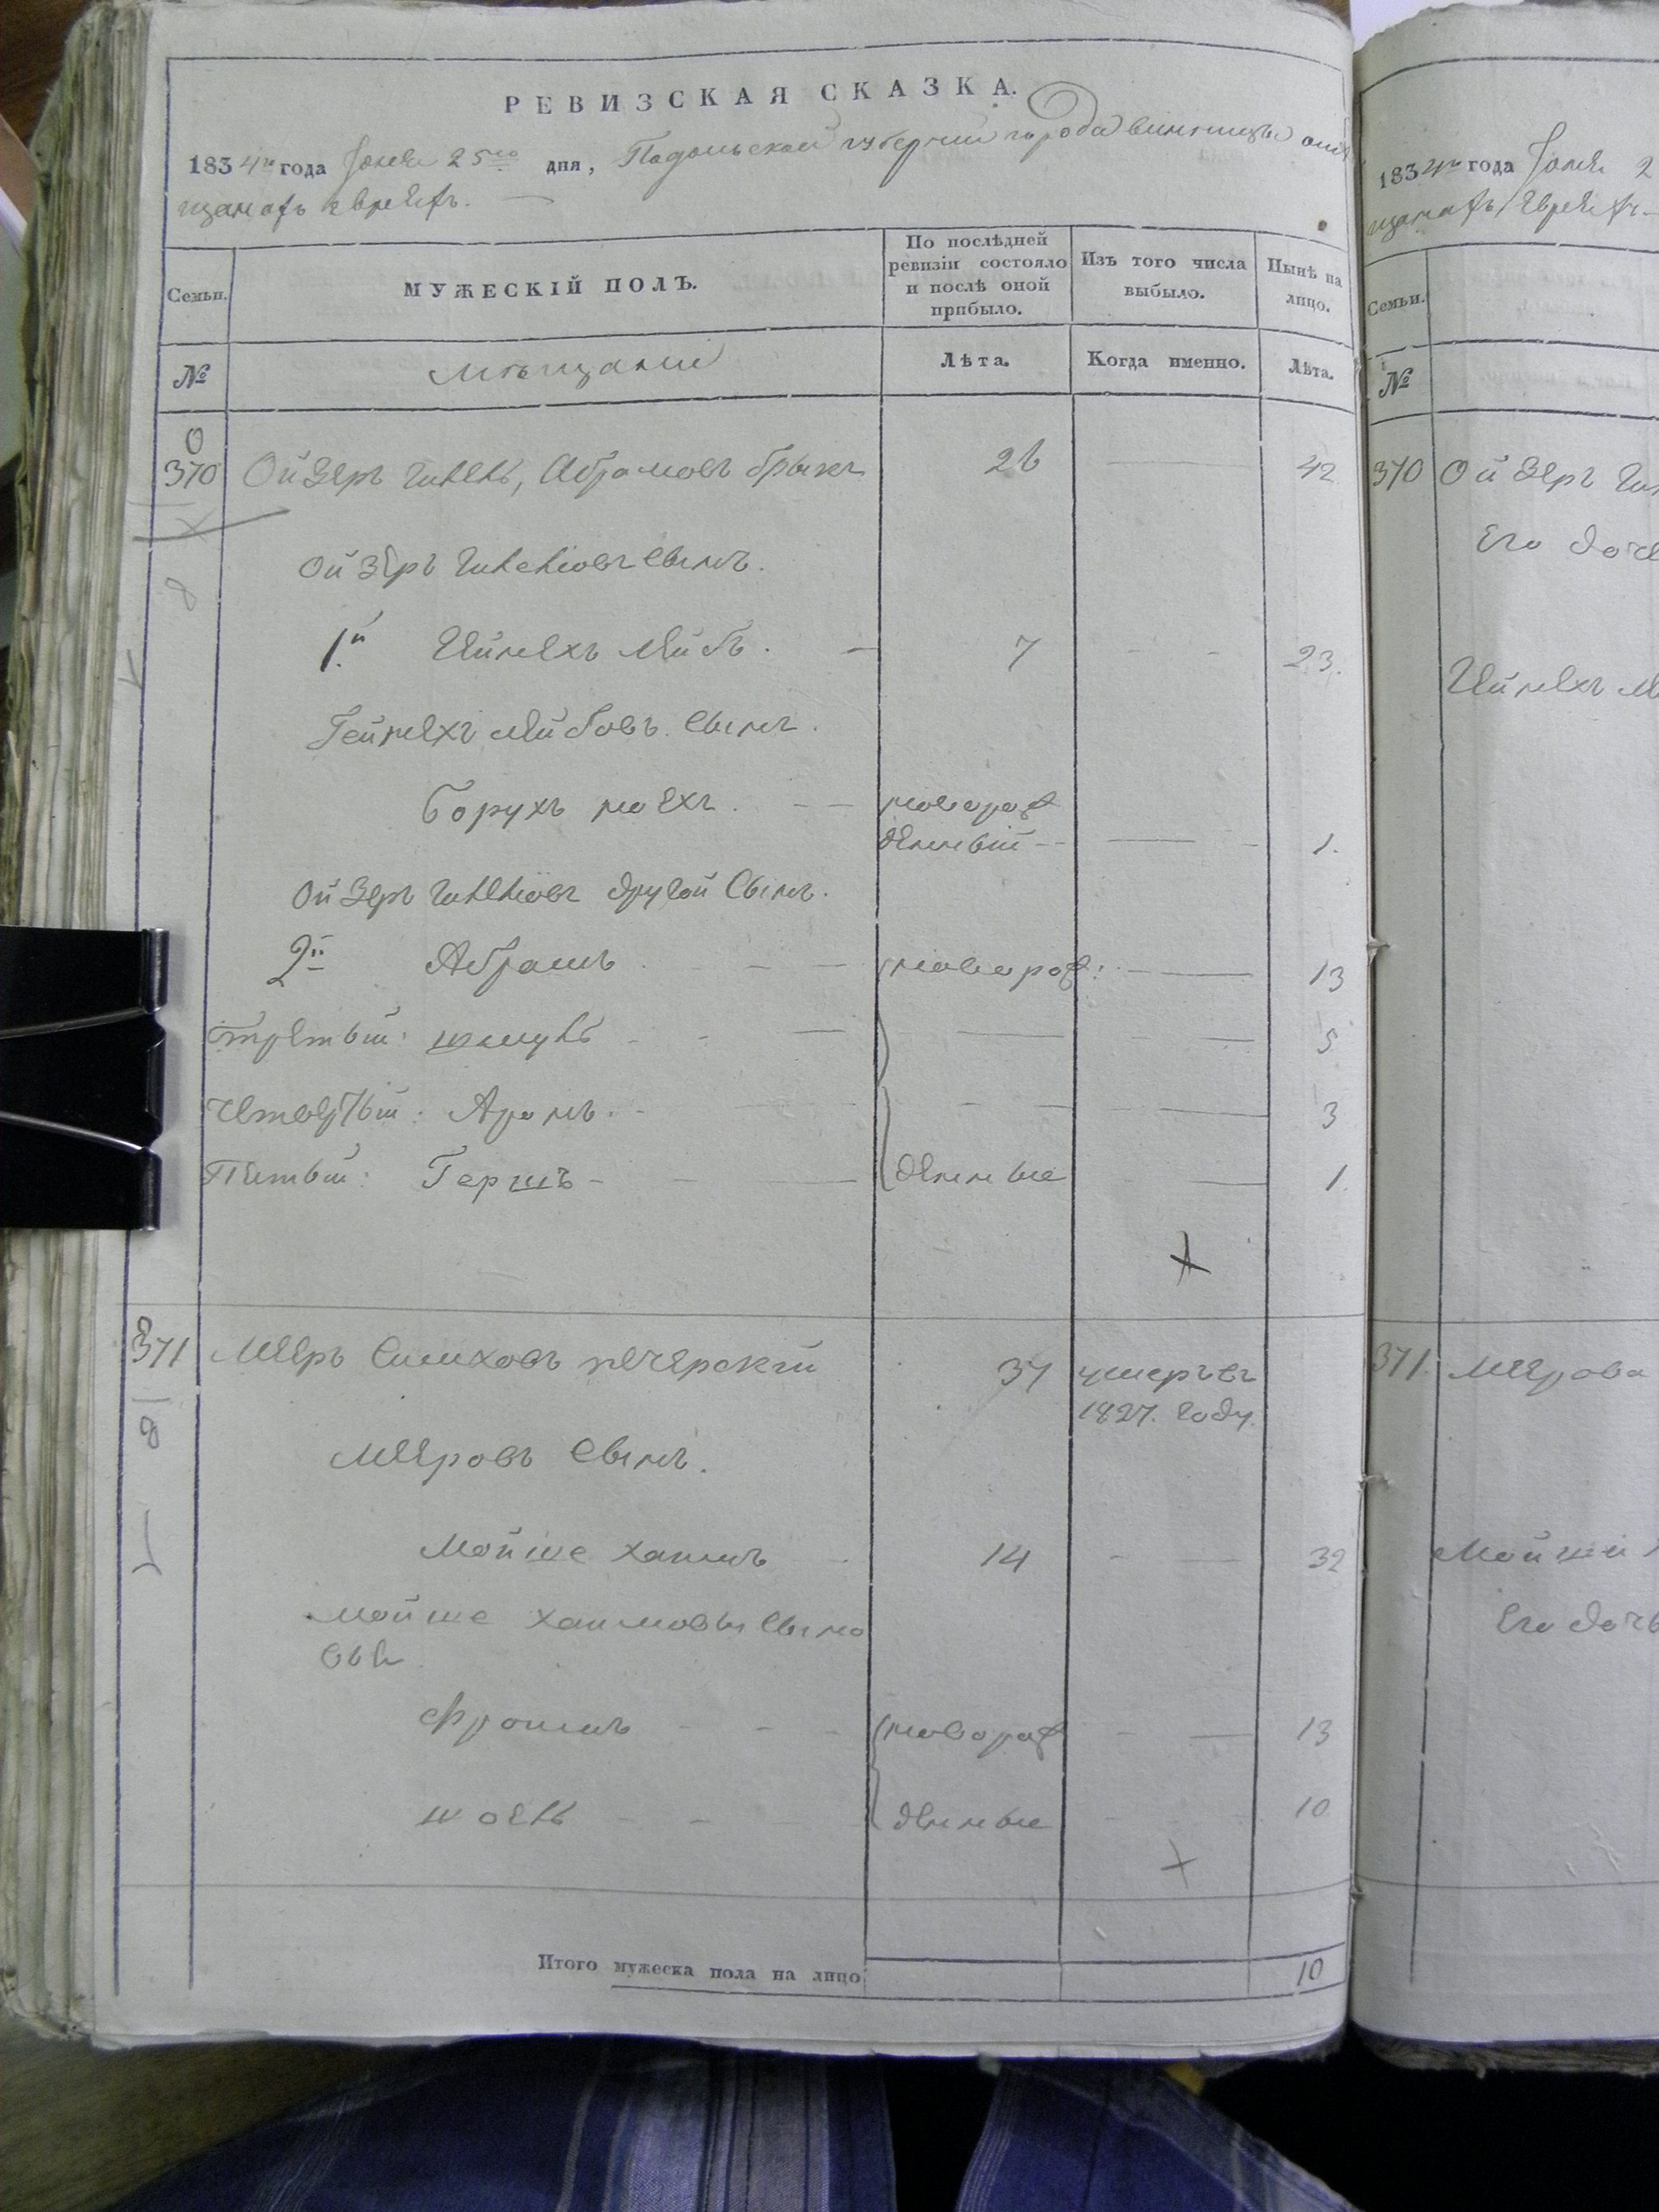 РЕВИЗСКАЯ СКАЗКА.
1834го года Июня 25го дня, Подольской губернии города винницы оми
щанахъ евреяхъ.
Семьи.
МУЖЕСКІЙ ПОЛЪ.
По послѣдней ревизіи состояло и послѣ оной прибыло.
Изъ того числа выбыло.
Нынѣ на лицо.
№
Мѣщане
Лѣта.
Когда именно.
Лѣта.
370 Ойзеръ Гилель, Абрамовъ брыкъ 26 42
Ойзеръ Гилелiовъ сынъ.
1й Геймехъ Лейбъ. 7 23.
Геймехъ Лейбовъ сынъ.
Борухъ новорож
денный 1.
Ойзеръ Гилелiовъ другой сынъ.
2й Абрамъ новорож: 13
Третый: шмуль 5
Четвертый: Аронъ. 3
Пятый: Гершъ денные 1.
371 Мееръ Симховъ печерскій 37 умеръ въ
1827. году.
Мееровъ сынъ.
Мойше хаимъ 14 32
Мойше хаимовы сыно
вья
Фроимъ новорож 13
шоель денные 10
Итого мужеска пола на лицо 10
1834го года Июня 2
щанахъ евреяхъ
Семьи.
№
370 Ойзеръ Ги
Его доче
371 Меерова
Мойши
Его дочь